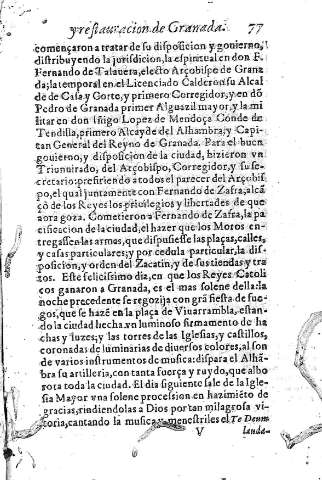 y restauracion de Granada. 77
començaron a tratar de su disposicion y gouierno,
distribuyendo la jurisdicion, la espiritual en don F.
Fernando de Talauera, electo Arçobispo de Grana
da; la temporal en el Licenciado Calderon su Alcal
de de Casa y Corte, y primero Corregidor, y en dõ
Pedro de Granada primer Alguazil mayor, y la mi
litar en don Iñigo Lopez de Mendoça Conde de
Tendilla, primero Alcayde del Alhambra, y Capi-
tan General del Reyno de Granada. Para el buen
gouierno, y disposicion de la ciudad, hizieron vn
Triunuirado, del Arçobispo, Corregidor, y su se-
cretario: prefiriendo a todos el parecer del Arçobis
po, el qual juntamente con Fernando de Zafra, alcã
çò de los Reyes los priuilegios y libertades de que
aora goza. Cometieron a Fernando de Zafra, la pa
cificacion de la ciudad, el hazer que los Moros en-
tregassen las armas, que dispusiesse las plaças, calles,
y casas particulares; y por cedula particular, la dis-
posicion, y orden del Zacatin, y de sus tiendas y tra
tos. Este felicissimo dia, en que los Reyes Catoli
cos ganaron a Granada, es el mas solene della: la
noche precedente se regozija con grã fiesta de fue-
gos, que se hazẽ en la plaça de Viuarrambla, estan-
do la ciudad hecha vn luminoso firmamento de ha
chas y luzes; y las torres de las Iglesias, y castillos,
coronadas de luminarias de diuersos colores, al son
de varios instrumentos de musica: dispara el Alhã-
bra su artilleria, con tanta fuerça y ruydo, que albo
rota toda la ciudad. El dia siguiente sale de la Igle-
sia Mayor vna solene procession en hazimiẽto de
gracias, rindiendolas a Dios por tan milagrosa vi-
toria, cantando la musica y menestriles el Te Deum
V lauda-